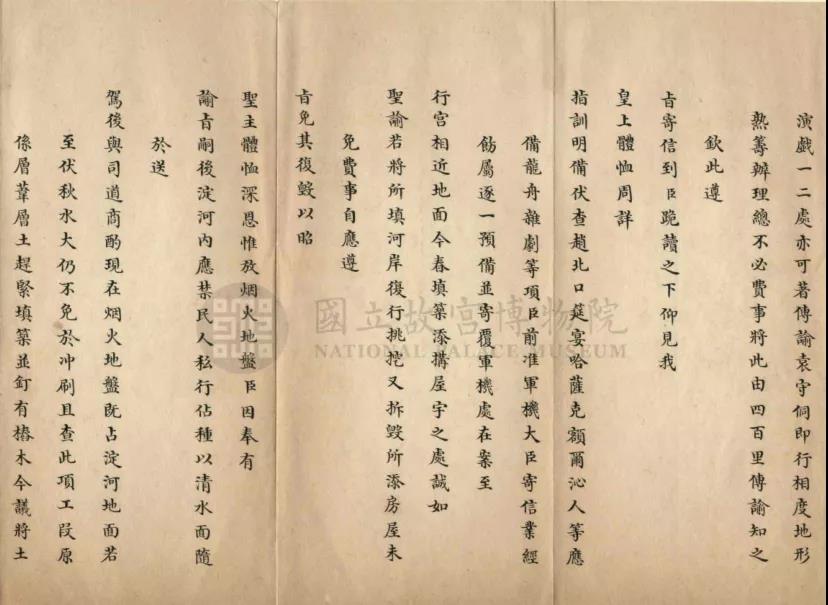 演戲一二處亦可著傳諭袁守侗即行相度地形
熱籌辦理總不必費事將此由四百里傳諭知之
欽此遵
㫖寄信到臣跪讀之下仰見我
皇上體恤周詳
指訓明備伏查趙北口筵宴哈薩克額爾沁人等應
備龍舟雜劇等項臣前准軍機大臣寄信業經
飭屬逐一預備並寄覆軍機處在案至
行宮相近地面今春填築添搆屋宇之處誠如
聖諭若將所填河岸復行挑挖又拆毀所添房屋未
免費事自應遵
㫖免其復毀以昭
聖主體恤深恩惟放烟火地盤臣因奉有
諭㫖嗣後淀河內應禁民人私行佔種以清水面隨
於送
駕後與司道商酌現在烟火地盤旣占淀河地面若
至伏秋水大仍不免於冲刷且查此項工段原
係層葦層土趕緊填築並釘有樁木今議將土
國立故宮博物院
NATIONAL PALACE MUSEUM